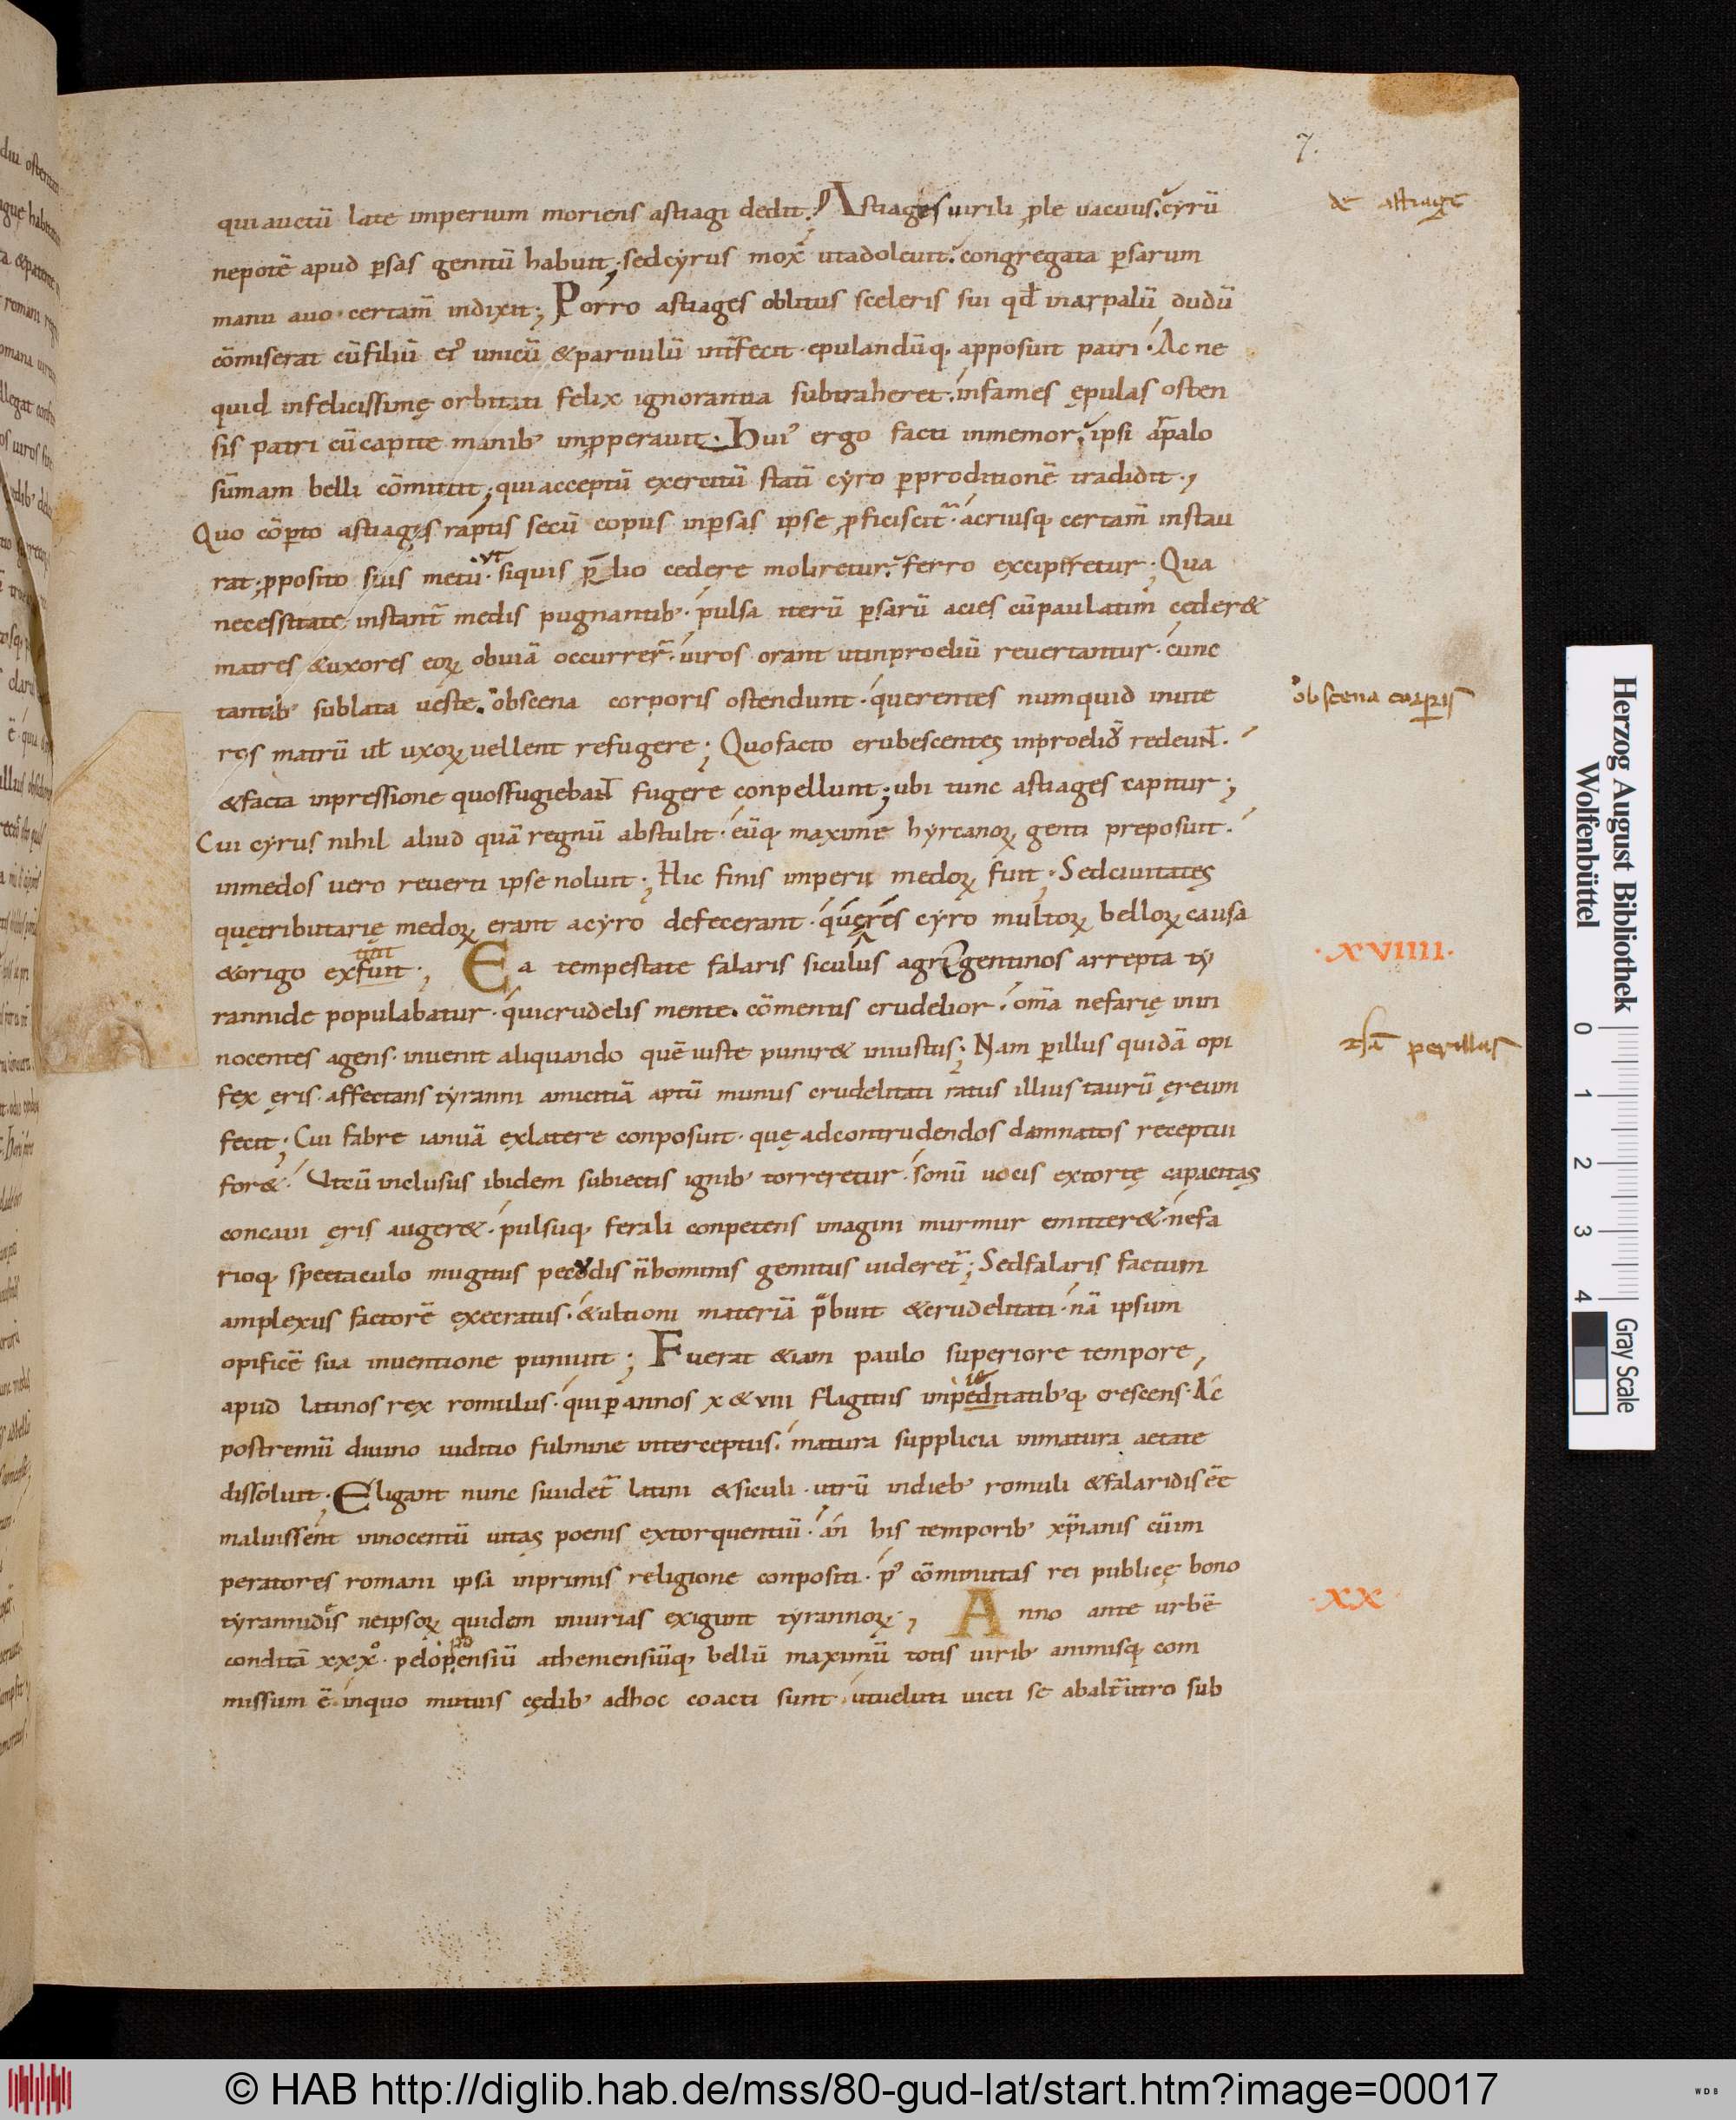 7.
qui auctū late imperium moriens astiagi dedit; Astiages uirili ꝓle uacuus. cyrū
de astiage
nepotē apud ꝑsas genitū habuit; sed cyrus mox ut adoleuit. congregata ꝑsarum
manu auo certam̄ indixit; Porro astiages oblitus sceleris sui qđ in arpalū dudū
cōmiserat cū filiū ei᾽ unicū & paruulū int̄fecit. epulandūq; apposuit patri. Ac ne
quid infelicissimę orbitati felix ignorantia subtraheret. infames ępulas osten
sis patri cū capite manib᾽ inproperauit. Hui᾽ ergo facti inmemor. ipsi arpalo
sūmam belli cōmittit; qui acceptū exercitū statī cyro ꝑ proditionē tradidit;
Quo cōꝑto astiages raptis secū copiis in ꝑsas ipse ꝓficiscit᷑. acriusq; certam̄ instau
rat; ꝓposito suis metu. ut siquis p̄lio cedere moliretur. ferro exciperetur; Qua
necessitate instant̄ medis pugnantib᾽. pulsa iterū ꝑsarū acies cū paulatim ceder&
matres & uxores eoꝝ obuiā occurrer̄. uiros orant ut in proeliū reuertantur. cunc
tantib᾽ sublata ueste. obscena corporis ostendunt. querentes num quid in ute
obscena corꝑis
ros matrū ul̄ uxoꝝ uellent refugere; Quo facto erubescentes in proeliū redeunt.
& facta inpressione quos fugiebant fugere conpellunt; ubi tunc astiages capitur;
Cui cyrus nihil aliud quā regnū abstulit. eūq; maxime hyrcanoꝝ genti preposuit.
in medos uero reuerti ipse noluit; Hic finis imperii medoꝝ fuit; Sed ciuitates
quę tributarię medoꝝ erant a cyro defecerant. quę res cyro multoꝝ belloꝝ causa
& origo extitit; Ea tempestate falaris siculus agrigentinos arrepta ty
XVIIII.
rannide populabatur. qui crudelis mente. cōmentis crudelior. om̄a nefarię in in
nocentes agens. inuenit aliquando quē iuste punir& iniustus; Nam ꝑillus quidā opi
perillus
fex ęris. affectans tyranni amicitiā aptū munus crudelitati ratus illius taurū ęreum
fecit; Cui fabre ianuā ex latere conposuit. quę ad contrudendos damnatos receptui
for&. Ut cū inclusus ibidem subiectis ignib᾽ torreretur. sonū uocis extortę capacitas
concaui ęris auger&. pulsuq; ferali conpetens imagini murmur emitter&. nefa
rioq; spectaculo mugitus pecudis n̄ hominis gemitus uideret᷑; Sed falaris factum
amplexus factorē execratus. & ultioni materiā p̄buit & crudelitati. nā ipsum
opificē sua inuentione puniuit; Fuerat &iam paulo superiore tempore,
apud latinos rex romulus. qui ꝑ annos x & viii flagitiis impietatib᾽q; crescens. Ac
postremū diuino iuditio fulmine interceptus. matura supplicia inmatura aetate
dissoluit. Eligant nunc si uidet᷑ latini & siculi. utrū in dieb᾽ romuli & falaridis ēē
maluissent innocentū uitas poenis extorquentiū. an his temporib᾽ xp̄ianis cū im
peratores romani ipsa in primis religione conpositi. p᾽ cōminutas rei publicę bono
tyrannides ne ipsoꝝ quidem iniurias exigunt tyrannoꝝ; Anno ante urbē
XX
conditā xxx᷎. pelopensiū atheniensiūq; bellū maximū totis uirib᾽ animisq; com
missum ē in quo mutuis cędib᾽ ad hoc coacti sunt. ut ueluti uicti se ab alt᷑utro sub
Herzog August Bibliothek
Wolfenbüttel
0 1 2 3 4
Gray Scale
© HAB http://diglib.hab.de/mss/80-gud-lat/start.htm?image=00017
WDB